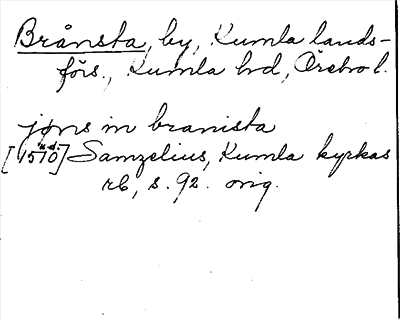 Brånsta, by, Kumla lands-
förs., Kumla hd, Örebro l.
jøns in branista
[1570] Samzelius, Kumla kyrkas
rb, s. 92. orig.